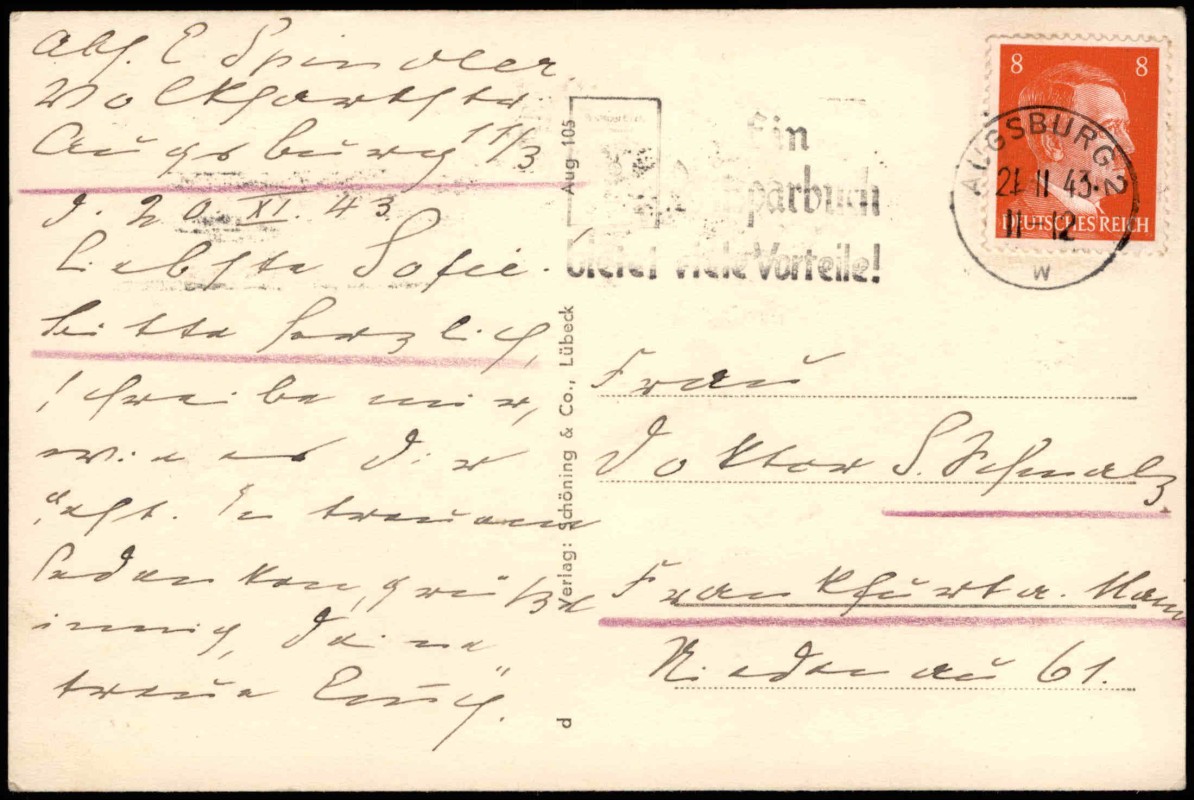 Abs. E. Spindler
Volkhartstr.
Augsburg 11/3
d. 20. XI. 43.
Liebste Sofie!
bitte herzlich,
schreibe mir,
wie es Dir
geht. In treuem
Gedenken, grüßt
innig, Deine
treue
Aug 105
Verlag: Schöning & Co., Lübeck
d
Ein
Sparbuch
bietet viele Vorteile!
8 8
DEUTSCHES REICH
AUGSBURG 2
21 11 43
11-12
w
Frau
Doktor S. Schmalz
Frankfurt a. Main
Niedenau 61.